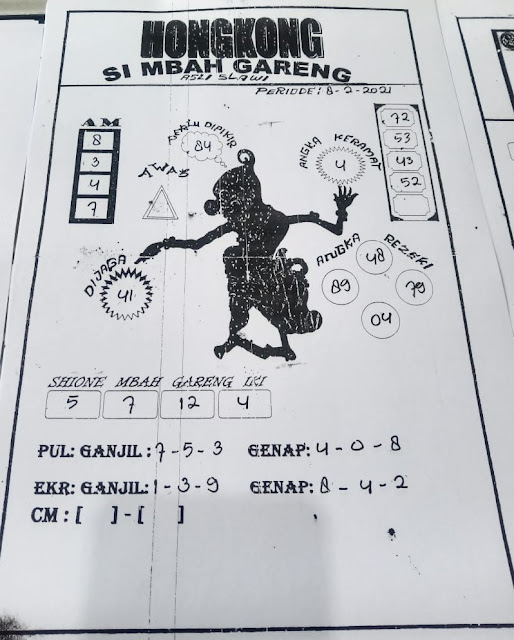 HONGKONG
SI MBAH GARENG
ASLI SLAWI
PERIODE: 8-2-2021
AM
8
3
4
7
PERLU DIPIKIR
84
AWAS
ANGKA KERAMAT
4
72
53
43
52
DIJAGA
41
ANGKA REZEKI
48
89
79
04
SHIONE MBAH GARENG IKI
5 7 12 4
PUL: GANJIL: 7-5-3 GENAP: 4-0-8
EKR: GANJIL: 1-3-9 GENAP: 8-4-2
CM : [ ] - [ ]